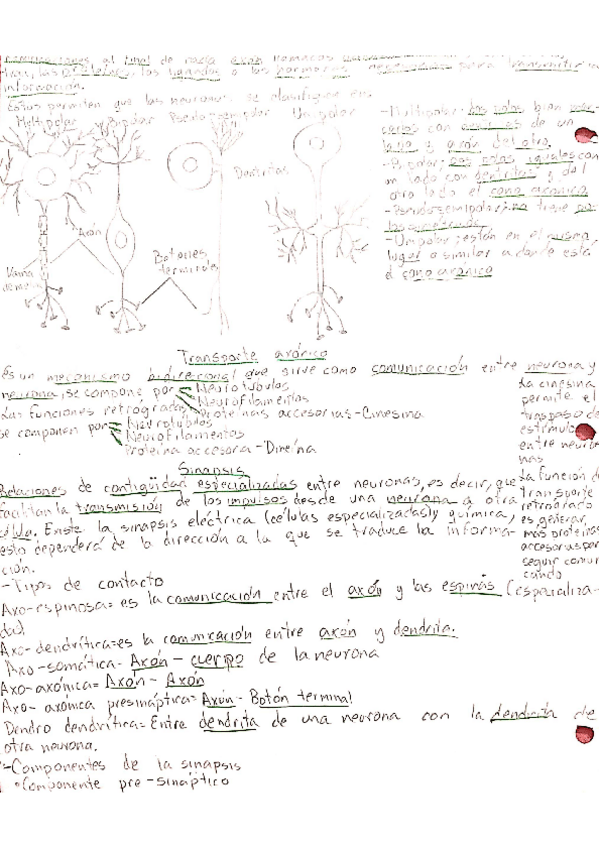 al final de cada axón llamadas
las los ligandos o las hormonas para transmitir
información.
Estas permiten que las neuronas se clasifiquen en:
Multipolar Bipolar Pseudounipolar Unipolar
Dendritas
Axón
Vaina
de mielina
Botones
terminales
-Multipolar: dos polos bien
con de un
lado y axón del otro.
-Bipolar: dos polos iguales con
un lado con dendritas y del
otro lado el cono axónico
tiene
-Unipolar: están en el mismo
lugar o similar a donde está
el cono axónico
Transporte axónico
Es un mecanismo bidireccional que sirve como comunicación entre neurona y
neurona; se compone por Neurotubulos
Neurofilamentos
Proteinas accesorias-Cinesina
Las funciones retrogradas
se componen por Neurotubulos
Neurofilamentos
Proteina accesora-Dineína
La cinesina
permite el
traspaso de
estímulo
entre neuro-
nas
La función de
transporte
retrogrado
es generar
mas proteinas
accesorias por
seguir comuni
cando
Sinapsis
Relaciones de contigüidad especializadas entre neuronas, es decir, que
facilitan la transmisión de los impulsos desde una neurona a otra
célula. Existe la sinapsis eléctrica (células especializadas) y química,
esto dependerá de la dirección a la que se traduce la informa-
ción.
-Tipos de contacto
Axo-espinosa= es la comunicación entre el axón y las espinas (especializa-
da)
Axo-dendrítica=es la comunicación entre axón y dendrita.
Axo-somática- Axón-cuerpo de la neurona
Axo-axónica= Axón-Axón
Axo-axónica presináptica= Axón-Botón terminal
Dendro dendrítica= Entre dendrita de una neurona con la dendrita de
otra neurona.
-Componentes de la sinapsis
•Componente pre-sináptico